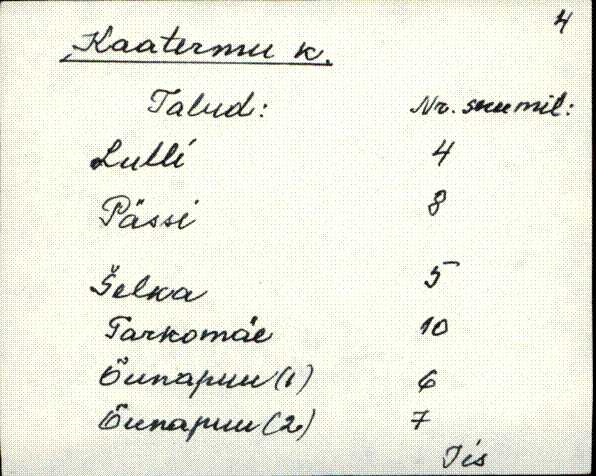 4
Kaatermu k.
Talud: Nr. suumil:
Lulli 4
Pässi 8
Šelka 5
Tarkomäe 10
Õunapuu (1) 6
Õunapuu (2) 7